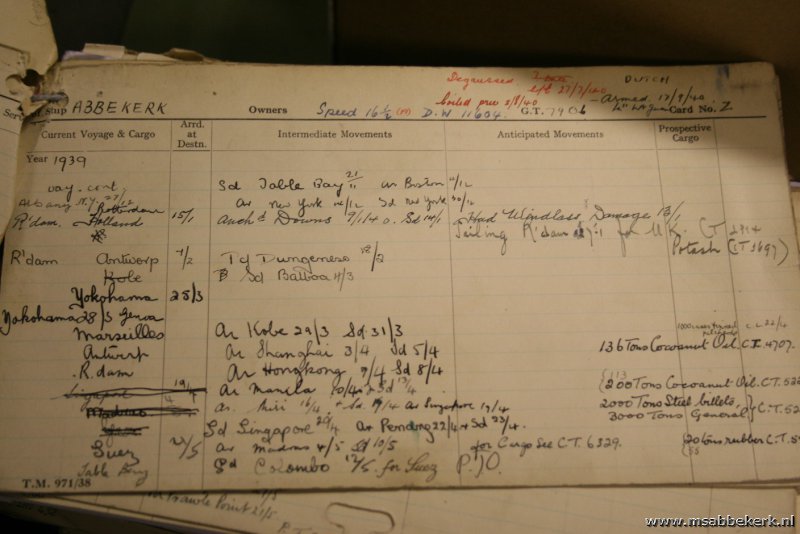 Degaussed
27/7/40
DUTCH
boiled
5/8/40
Armed 17/9/40
Ship ABBEKERK Owners Speed 16½ D.W 11604. G.T. 7906 Card No. 2
Current Voyage & Cargo Arrd. at Destn. Intermediate Movements Anticipated Movements Prospective Cargo
Year 1939
voy. cont. Sd Table Bay 21/11 ar Boston 11/12
Albany N.Y. 27/12 ar New York 14/12 Sd New York 30/12
Rotterdam
R'dam. Holland 15/1 anchd Downs 7/1/40. Sd 14/1 Had Windlass Damage 13/1
Sailing R'dam for U.K. CT 2914
Potash (CT 1697)
R'dam Antwerp 4/2 Dungeness 12/2
Kobe Sd Balboa 4/3
Yokohama 28/3
Yokohama 28/3 Genoa
Marseilles Ar Kobe 29/3 Sd 31/3
Antwerp Ar Shanghai 3/4 Sd 5/4 136 Tons Cocoanut Oil. C.T. 4707.
R.dam Ar Hongkong 7/4 Sd 8/4
Ar Manila 10/4 Sd 13/4 200 Tons Cocoanut Oil. C.T. 522
Madras ar. Miri 16/4 Sd 17/4 Ar Singapore 19/4 2000 Tons Steel billets,
3000 Tons General C.T. 52
Sd Singapore 21/4 Ar Penang 22/4 Sd 23/4
Suez 22/5 ar Madras 4/5 Sd 10/5 for Cargo See C.T. 6329. 20 tons rubber C.T. 5
Table Bay Sd Colombo 12/5 for Suez P.T.O.
T.M. 971/38
Point 21/5
www.msabbekerk.nl